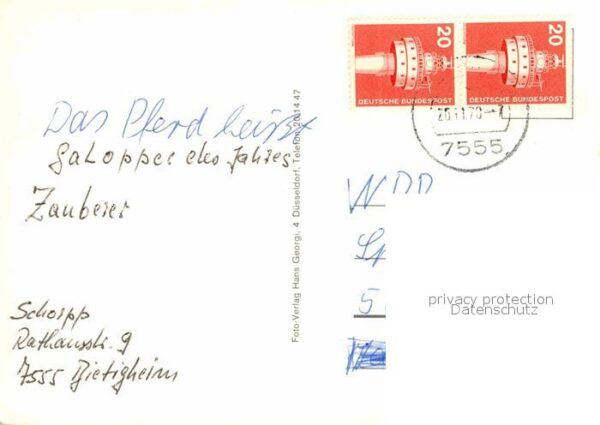 20
20
DEUTSCHE BUNDESPOST
DEUTSCHE BUNDESPOST
7555
Das Pferd heißt
Galopper des Jahres
Zauberer
Schorpp
Rathausstr. 9
7555 Bietigheim
Foto-Verlag Hans Georgi, 4 Düsseldorf, Telefon 20 14 47
WDR
5
privacy protection
Datenschutz